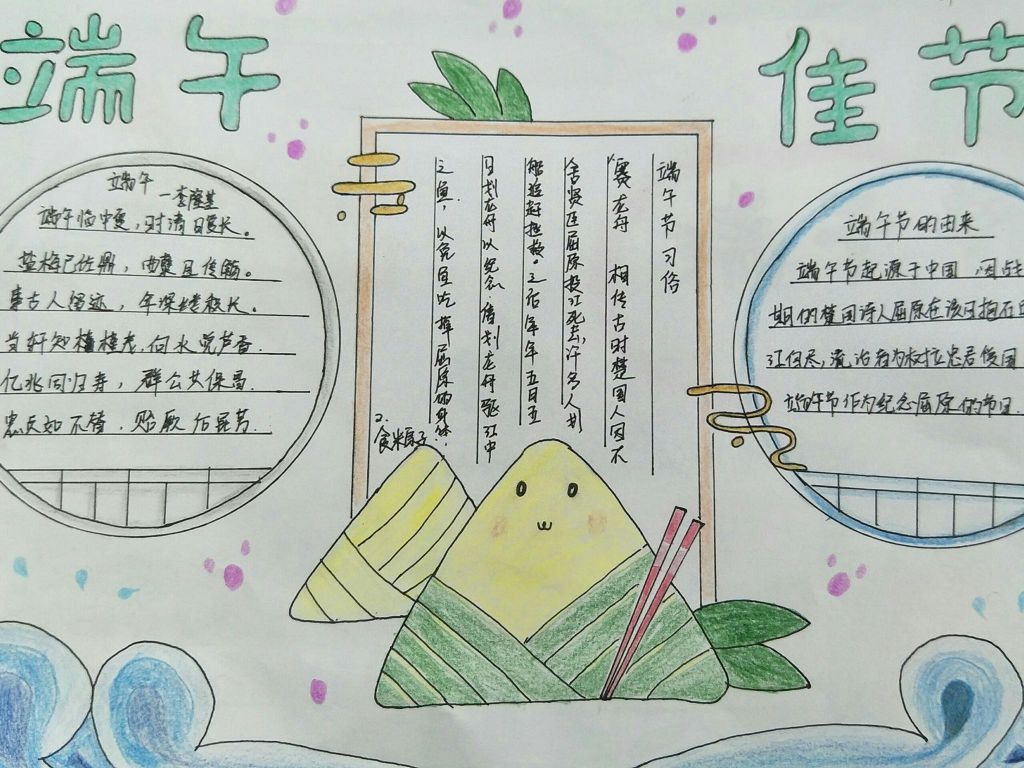 端午佳节
端午
—李隆基
端午临中夏，时清日复长。
盐梅已佐鼎，曲糵且传觞。
事古人留迹，年深缕积长。
当轩知槿茂，向水觉芦香.
亿兆同归寿，群公共保昌.
忠贞如不替，贻厥后昆芳.
端午节习俗
赛龙舟 相传古时楚国人因不
舍贤臣屈原投江死去，许多人划
船追赶拯救。之后年年五日五
日划龙舟以纪念 借划龙舟驱江中
之鱼，以免鱼吃掉屈原的身体.
2.
食米粽子
端午节的由来
端午节起源于中国，因战
期的楚国诗人屈原在该日抱石
江自尽，统治者为树立忠君爱国
端午节作为纪念屈原的节日.